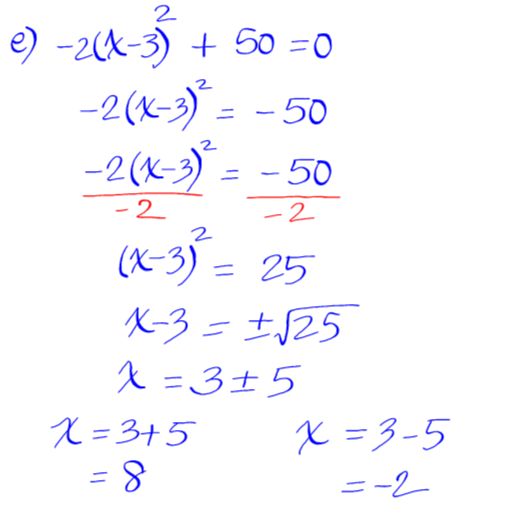 e) -2(x-3)² + 50 = 0
-2(x-3)² = -50
-2(x-3)² = -50
-2 -2
(x-3)² = 25
x-3 = ±√25
x = 3 ± 5
x = 3+5 x = 3-5
= 8 = -2